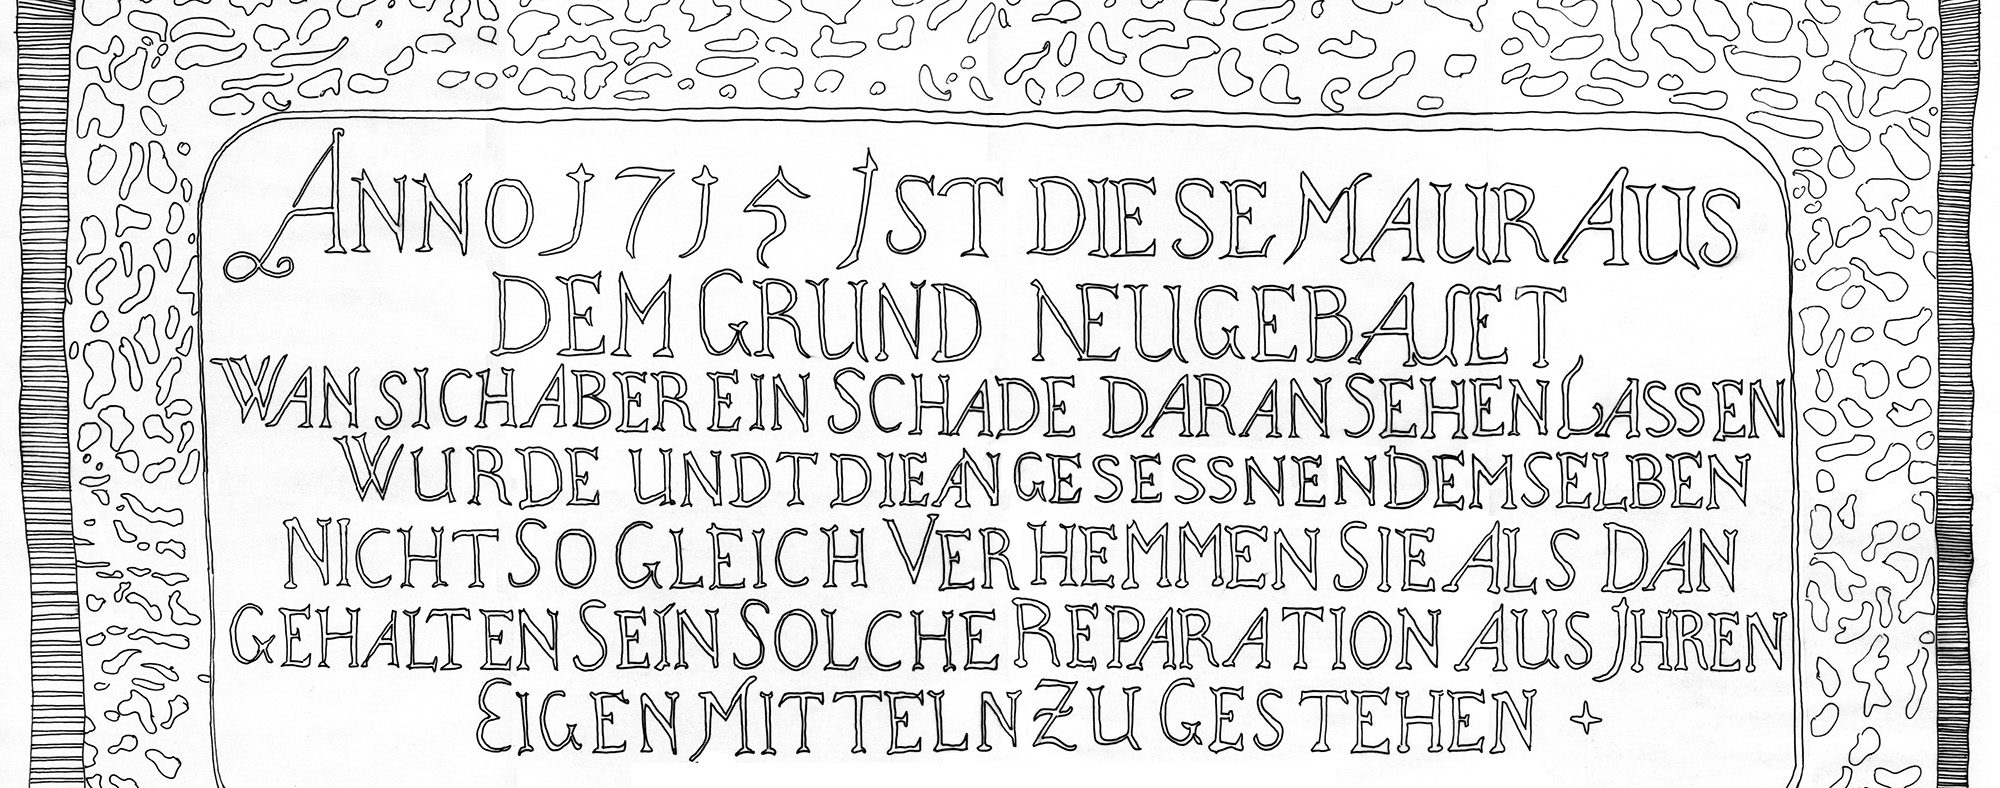 ANNO 1715 IST DIESE MAUR AUS
DEM GRUND NEUGEBAUET
WAN SICH ABER EIN SCHADE DARAN SEHEN LASSEN
WURDE UNDT DIE ANGESESSNEN DEMSELBEN
NICHT SO GLEICH VERHEMMEN SIE ALS DAN
GEHALTEN SEIN SOLCHE REPARATION AUS JHREN
EIGEN MITTELN ZU GESTEHEN